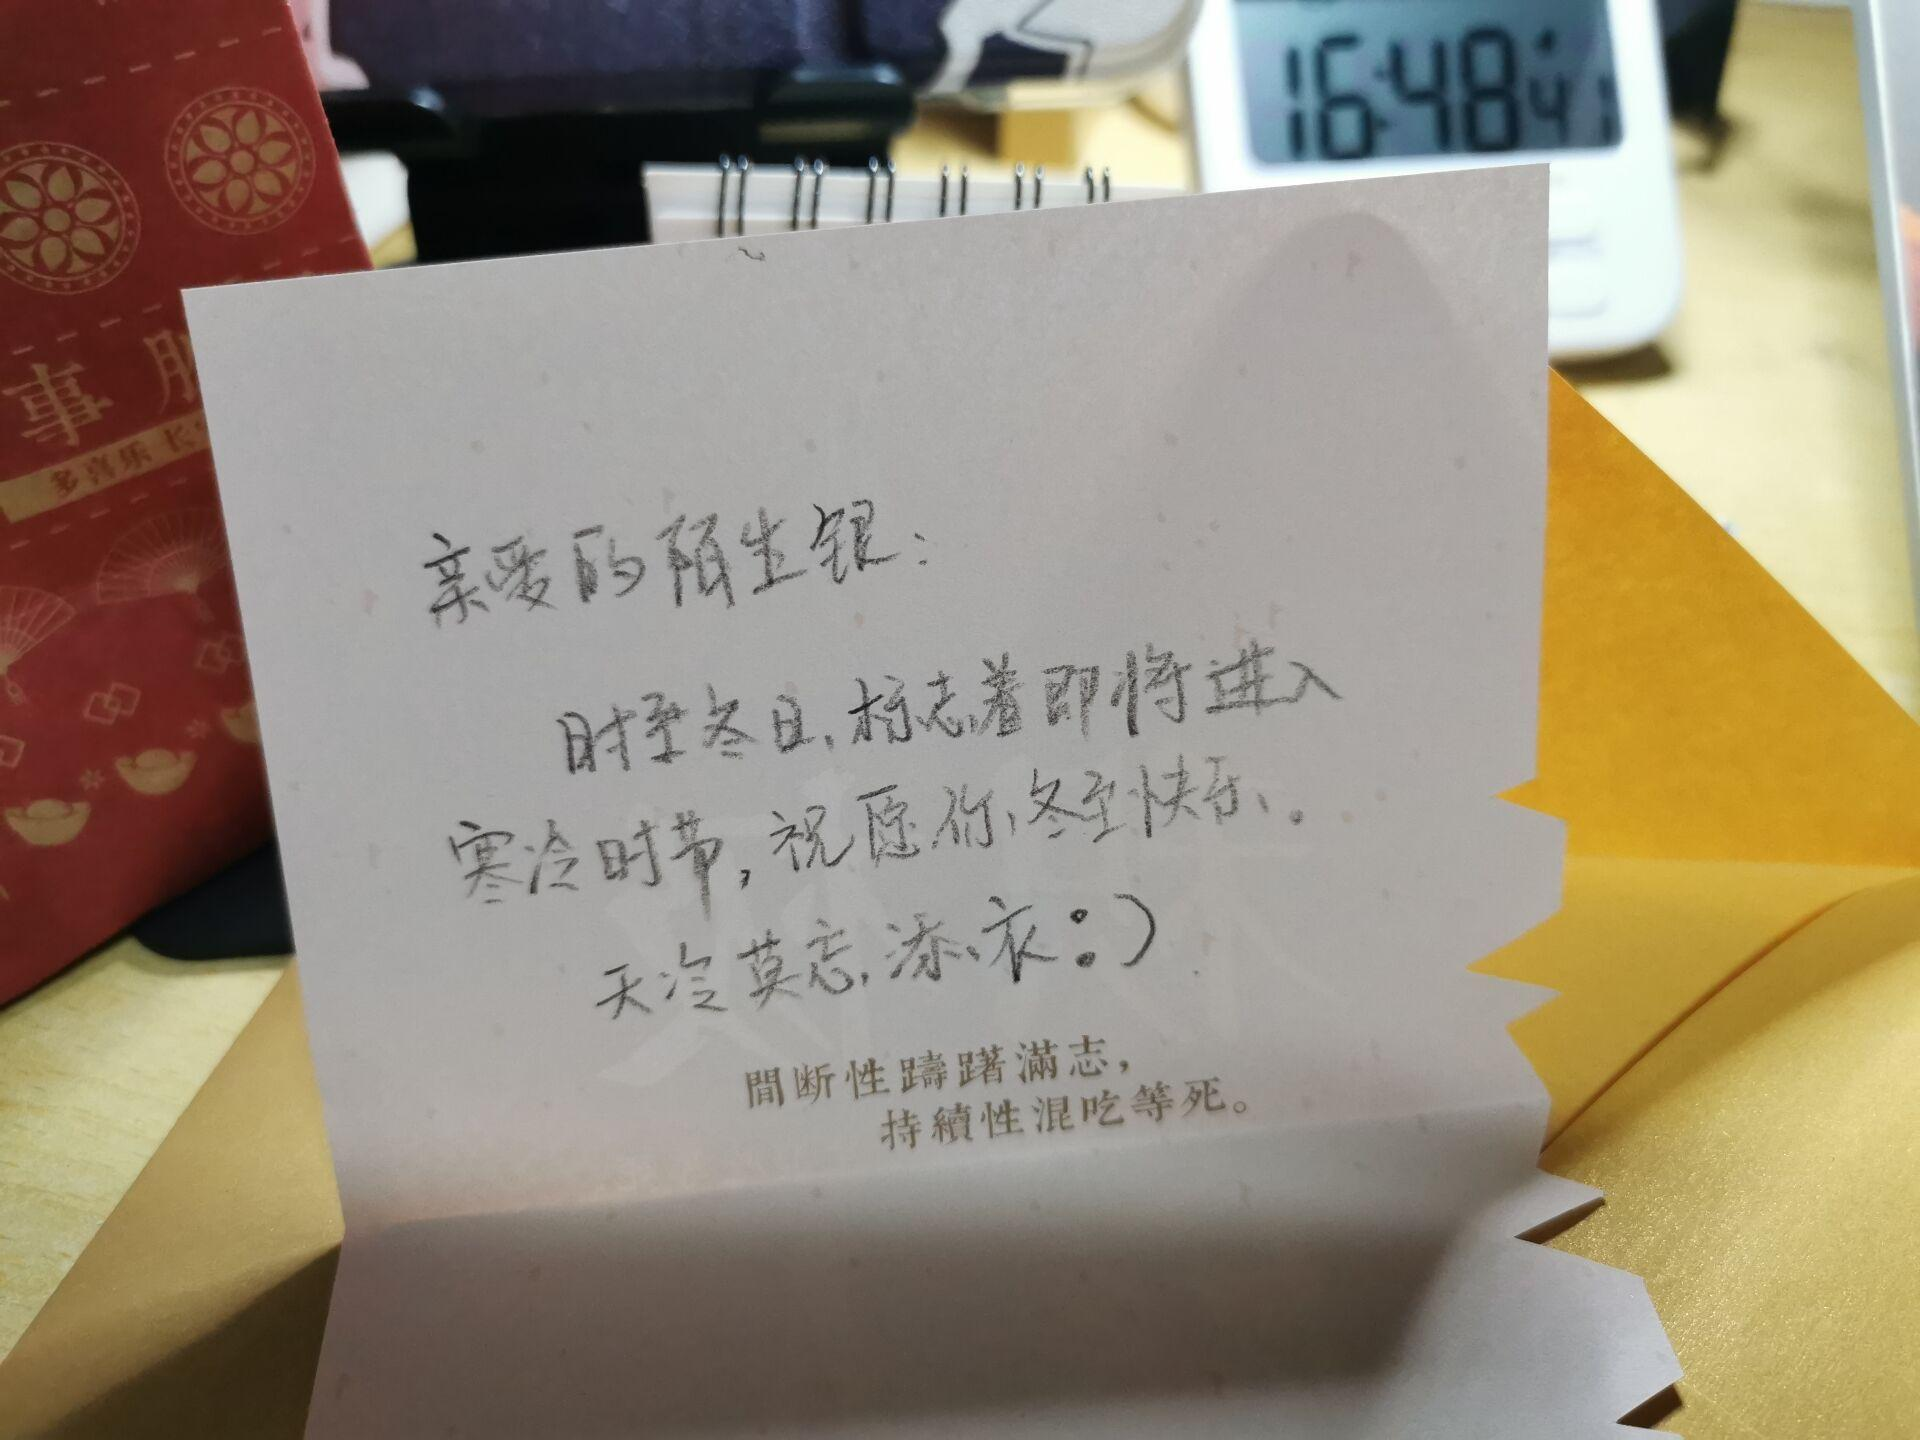 16:48 41
事
多喜乐 长
亲爱的陌生银：
时至冬日，标志着即将进入
寒冷时节，祝愿你，冬至快乐、。
天冷莫忘，添、衣：）
間断性躊躇滿志，
持續性混吃等死。